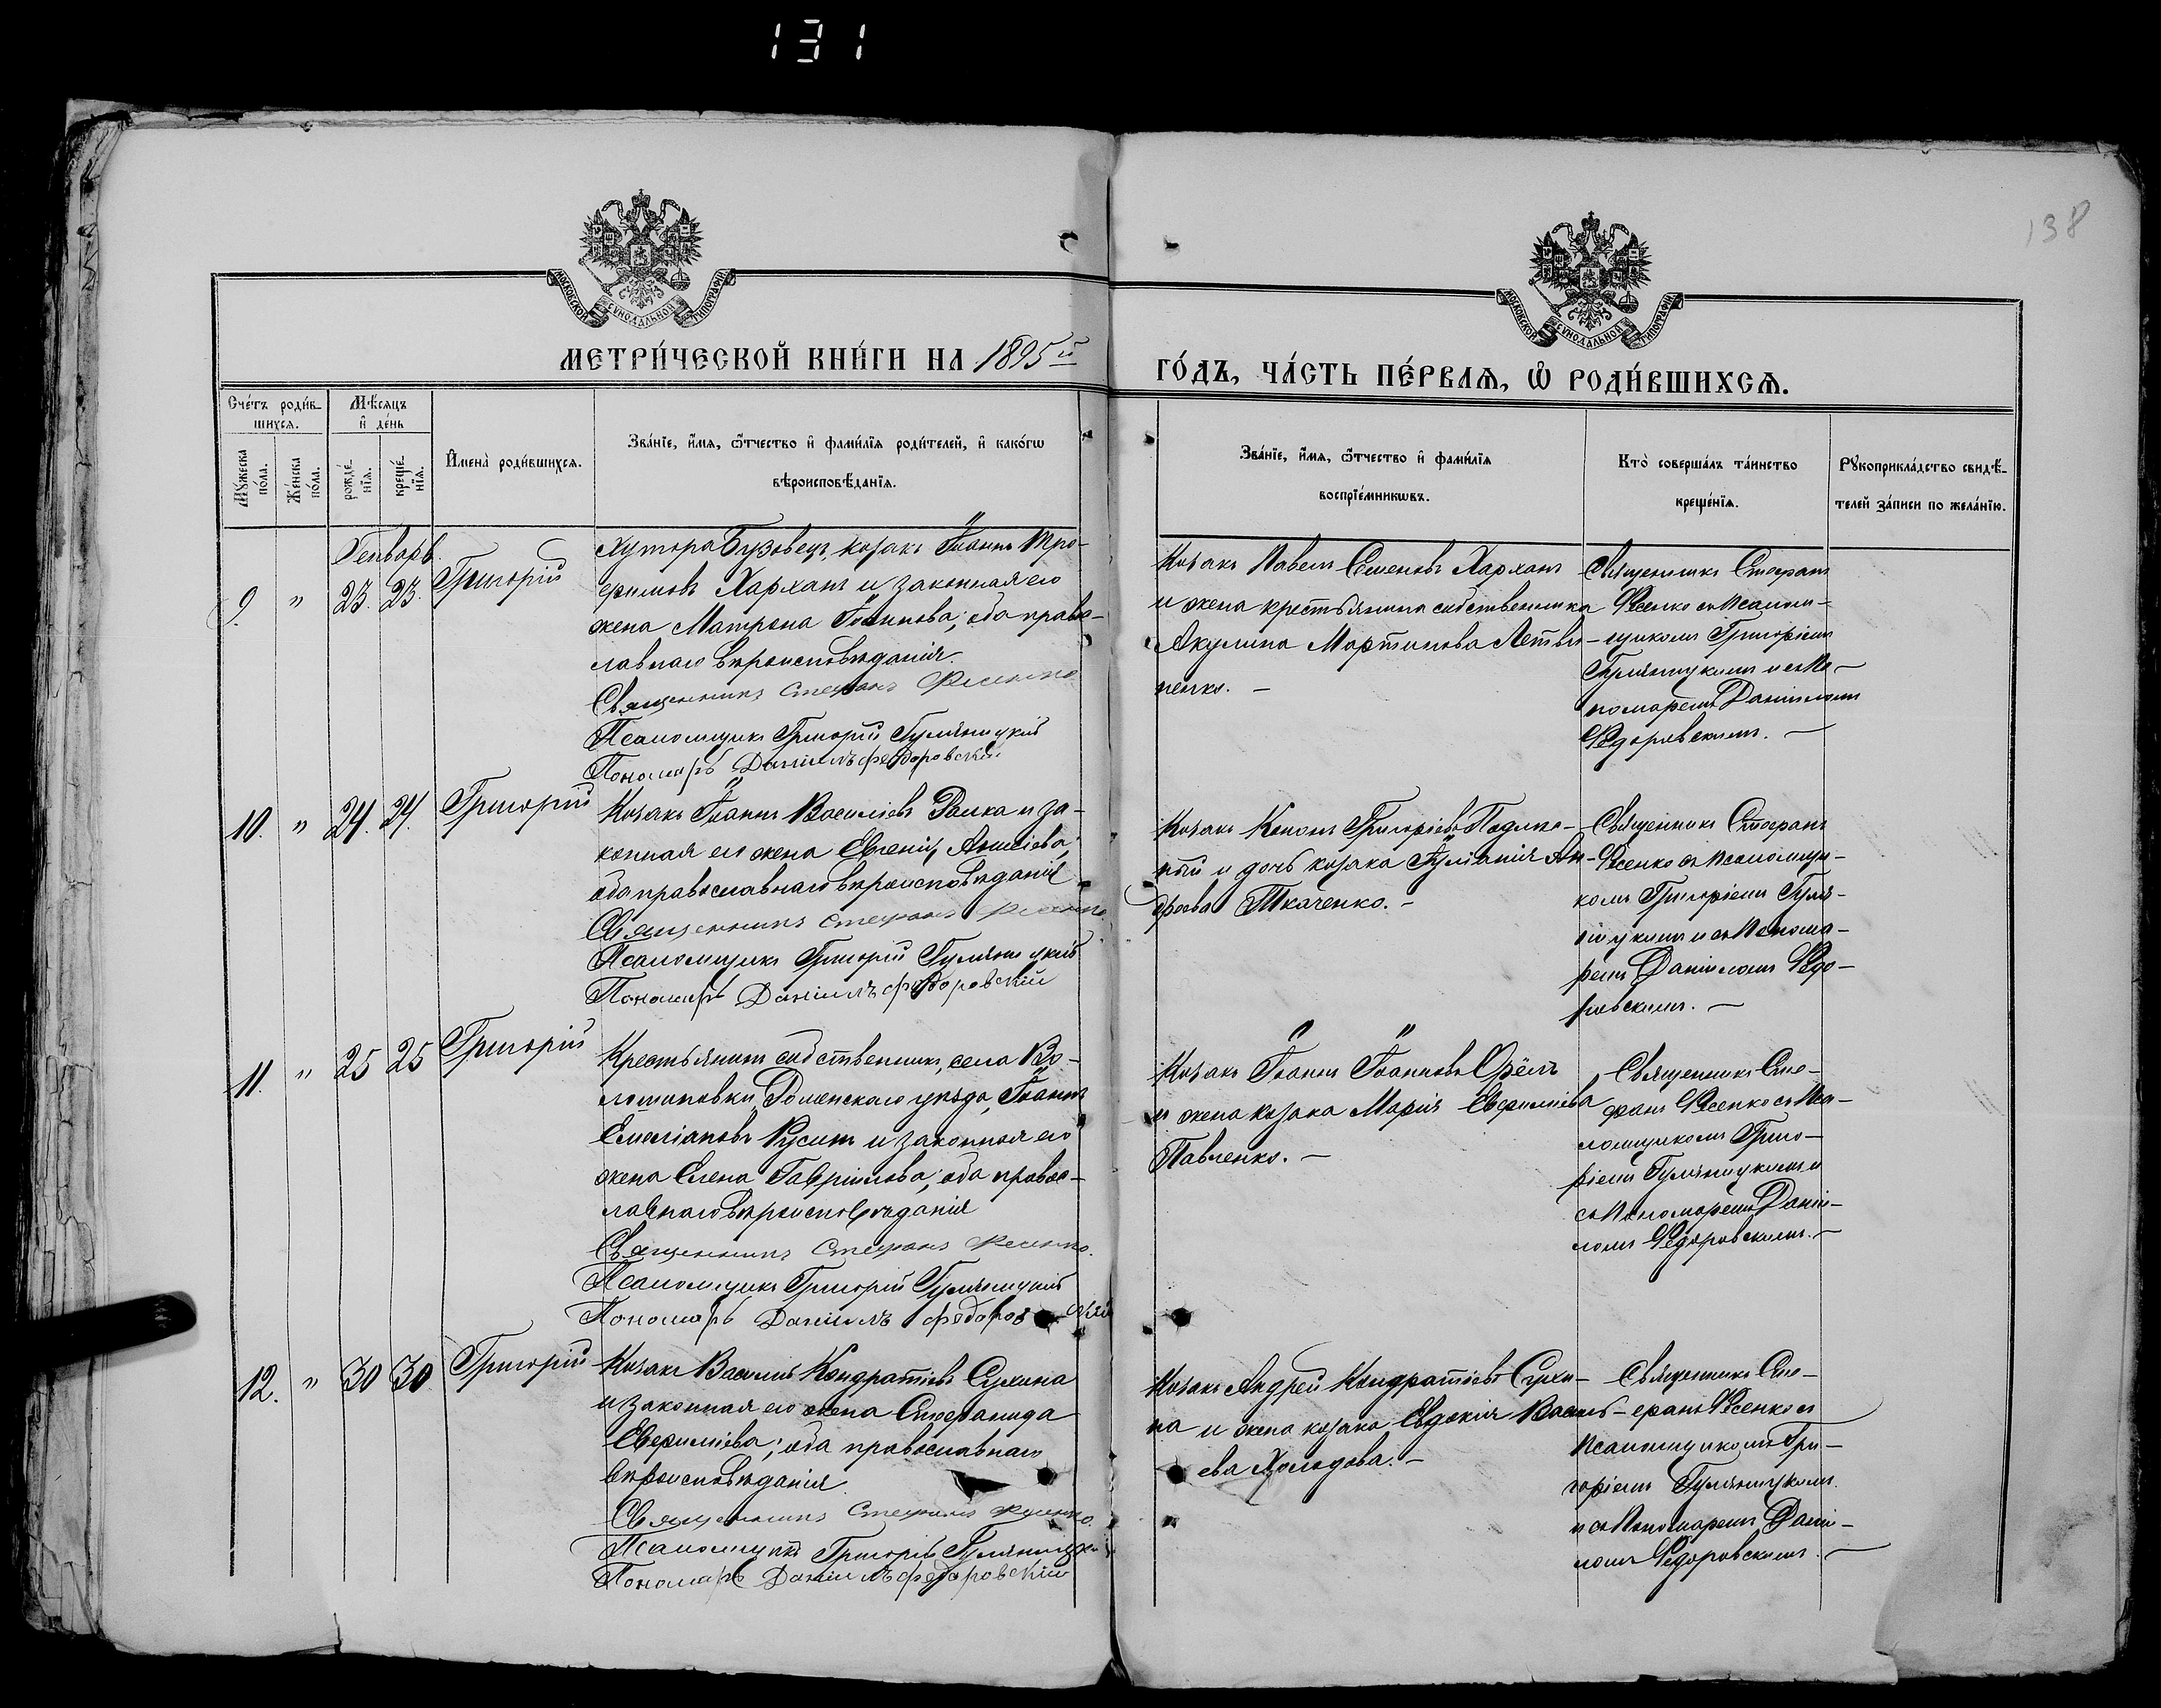 131
138
МОСКОВСКОЙ СУНОДАЛЬНОЙ ТИПОГРАФІИ
МОСКОВСКОЙ СУНОДАЛЬНОЙ ТИПОГРАФІИ
МЕТРИ́ЧЕСКОЙ КНИ́ГИ НА 1895й
ГО́ДЪ, ЧА́СТЬ ПЕ́РВАѦ, Ѡ҆ РОДИ́ВШИХСѦ.
Сче́тъ роди́в-
шихсѧ.
Мꙋ́жеска по́ла.
Же́нска по́ла.
Мѣ́сѧцъ
и҆ де́нь
рожде́-
нїѧ.
креще́-
нїѧ.
И҆мена̀ роди́вшихсѧ.
Зва́нїе, и҆́мѧ, ѻ҆́тчество и҆ фами́лїѧ роди́телей, и҆ како́гѡ
вѣроисповѣ́данїѧ.
Зва́нїе, и҆́мѧ, ѻ҆́тчество и҆ фами́лїѧ
воспрїе́мникѡвъ.
Кто̀ соверша́лъ та́инство
креще́нїѧ.
Рꙋкоприкла́дство свидѣ́-
телей за́писи по жела́нїю.
Генварь.
9. " 23. 23. Григорій
Хутора Бузовецъ, козакъ Іоаннъ Тро-
фимовъ Харханъ и законная его
жена Матрона Іоаннова; оба право-
славнаго вѣроисповѣданія.
Священникъ Стефанъ Фесенко
Псаломщикъ Григорій Гуляницкій
Пономарь Даніилъ Федоровскій
Козакъ Павелъ Семеновъ Харханъ
и жена крестьянина собственника
Акулина Мартинова Литви-
ненко. —
Священникъ Стефанъ
Фесенко съ Псалом-
щикомъ Григоріемъ
Гуляницкимъ и съ По-
номаремъ Даніиломъ
Федоровскимъ. —
10. " 24. 24. Григорій
Козакъ Іоаннъ Василіевъ и за-
конная его жена Евгенія
оба православнаго вѣроисповѣданія
Священникъ Стефанъ Фесенко
Псаломщикъ Григорій Гуляницкій
Пономарь Даніилъ Федоровскій
Козакъ Кононъ Григоріевъ
и дочь козака Іуліанія Ан-
дреева Ткаченко. —
Священникъ Стефанъ
Фесенко съ Псаломщи-
комъ Григоріемъ Гуля-
ницкимъ и съ Понома-
ремъ Даніиломъ Федо-
ровскимъ. —
11. " 25 25 Григорій
Крестьянинъ собственникъ, села Во-
лошиновки, Роменскаго уѣзда, Іоаннъ
Емеліановъ Русинъ и законная его
жена Елена Гавріилова; оба правос-
лавнаго вѣроисповѣданія
Священникъ Стефанъ Фесенко.
Псаломщикъ Григорій Гуляницкій
Пономарь Даніилъ Федоровскій
Козакъ Іоаннъ Іоанновъ Орёлъ
и жена козака Марія Евфиміева
Павленко. —
Священникъ Сте-
фанъ Фесенко съ Пса-
ломщикомъ Григо-
ріемъ Гуляницкимъ и
съ Пономаремъ Даніи-
ломъ Федоровскимъ. —
12. " 30 30 Григорій
Козакъ Василій Кондратіевъ Сухина
и законная его жена Стефанида
Евфиміева; оба православнаго
вѣроисповѣданія
Священникъ Стефанъ Фесенко.
Псаломщикъ Григорій Гуляницкій
Пономарь Даніилъ Федоровскій
Козакъ Андрей Кондратіевъ Сухи-
на и жена козака Евдокія Василь-
ева Холодова. —
Священникъ Сте-
фанъ Фесенко съ
Псаломщикомъ Гри-
горіемъ Гуляницкимъ
и съ Пономаремъ Даніи-
ломъ Федоровскимъ. —